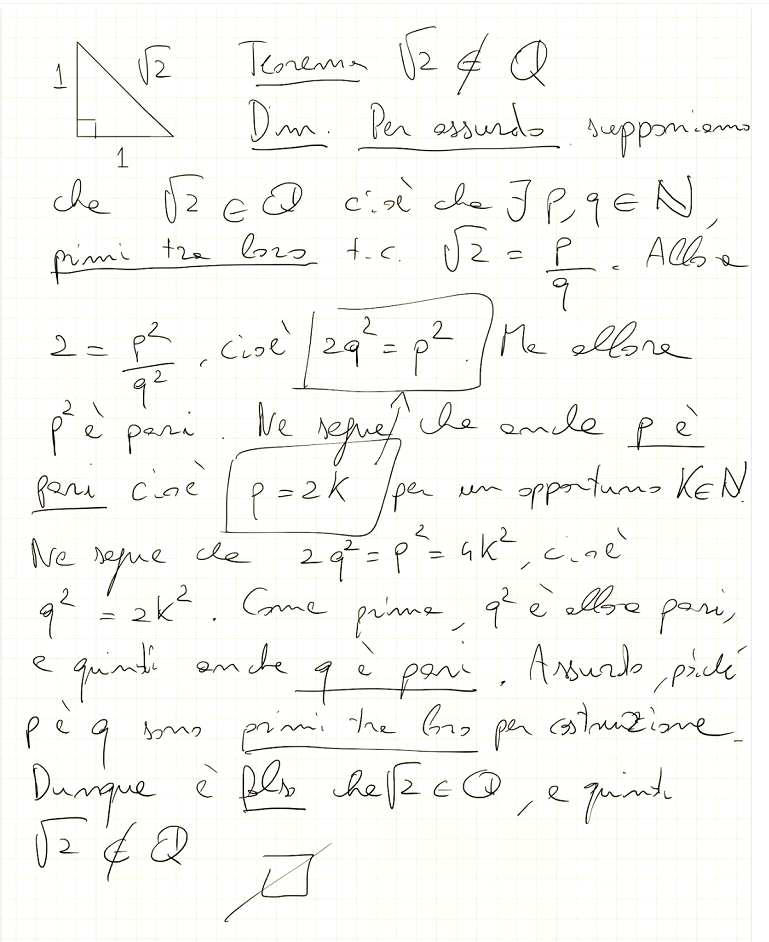 1 √2 Teorema √2 ∉ Q
1 Dim. Per assurdo supponiamo
che √2 ∈ Q cioè che ∃ p, q ∈ N,
primi tra loro t.c. √2 = p/q. Allora
2 = p²/q², cioè 2q² = p². Ma allora
p² è pari. Ne segue che anche p è
pari cioè p = 2K per un opportuno K ∈ N.
Ne segue che 2q² = p² = 4K², cioè
q² = 2K². Come prima, q² è allora pari,
e quindi anche q è pari. Assurdo, poiché
p è q sono primi tra loro per costruzione.
Dunque è falso che √2 ∈ Q, e quindi
√2 ∉ Q